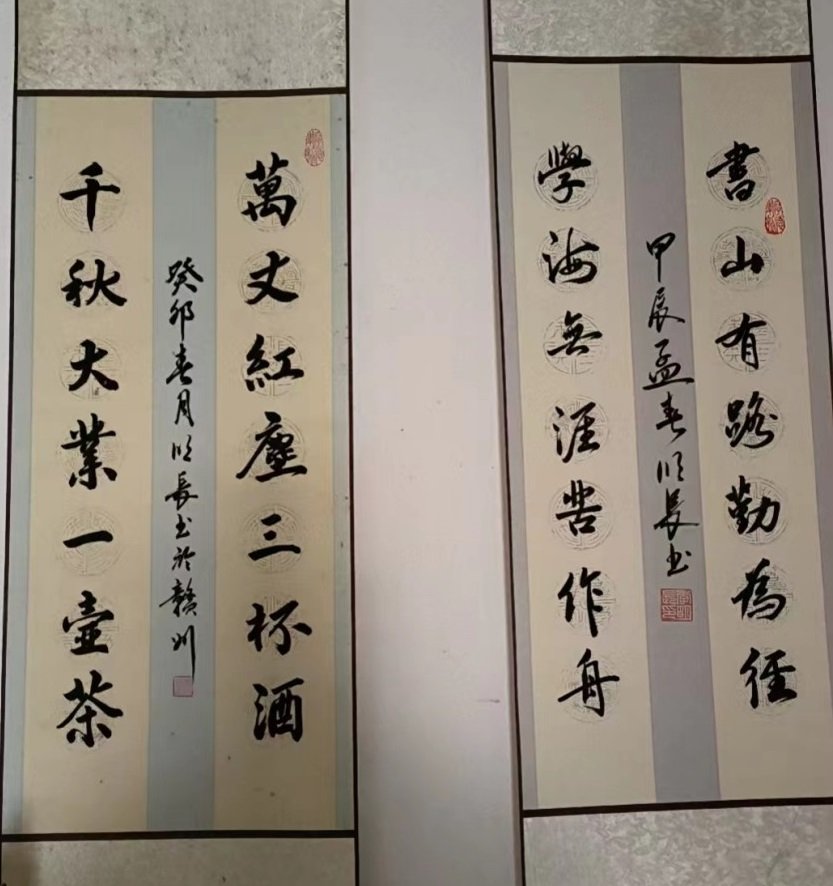 書山有路勤為徑
學海無涯苦作舟
甲辰孟春順長书
萬丈紅塵三杯酒
千秋大業一壺茶
癸卯春月順長书於贛州